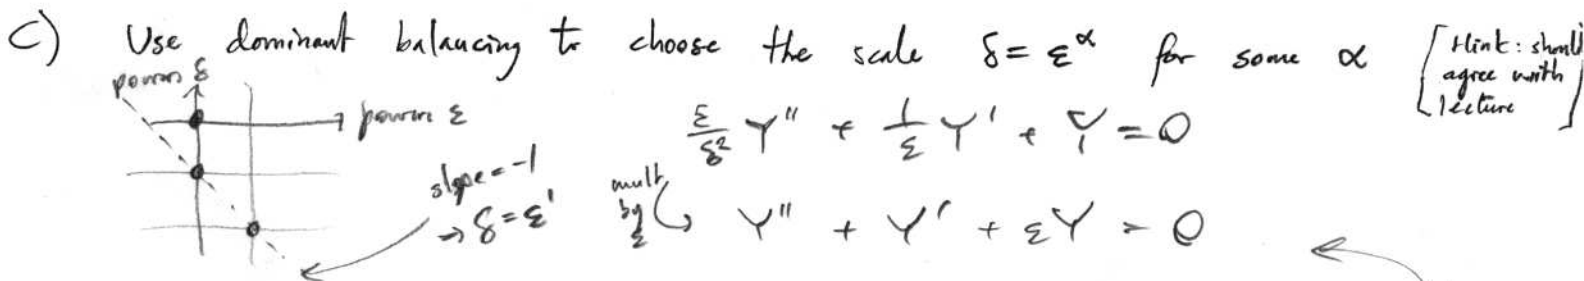 C) Use dominant balancing to choose the scale δ = ε^α for some α [Hint: should agree with lecture]
powers δ
powers ε
ε/δ² Y'' + 1/ε Y' + Y = 0
slope = -1
→ δ = ε¹
mult by ε
Y'' + Y' + εY = 0